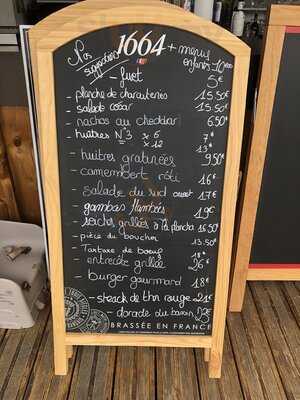 Nos suggestions
1664
+ menu
enfants 10€
- fuet 5€
- planche de charcuteries 15,50€
- salade césar 15.50€
- nachos au cheddar 6.50€
- huîtres N°3 x 6 7€
x 12 13€
- huitres gratinées 9,50€
- camembert rôti 16€
- salade du sud ouest 17€
- gambas flambées 19€
- seiches grillées à la plancha 16.50€
- pièce du boucher 13.50€
- Tartare de boeuf 18€
- entrecôte grillée 26€
- burger gourmand 18€
- steack de thn rouge 21€
- dorade du bassin 25€
BRASSÉE EN FRANCE